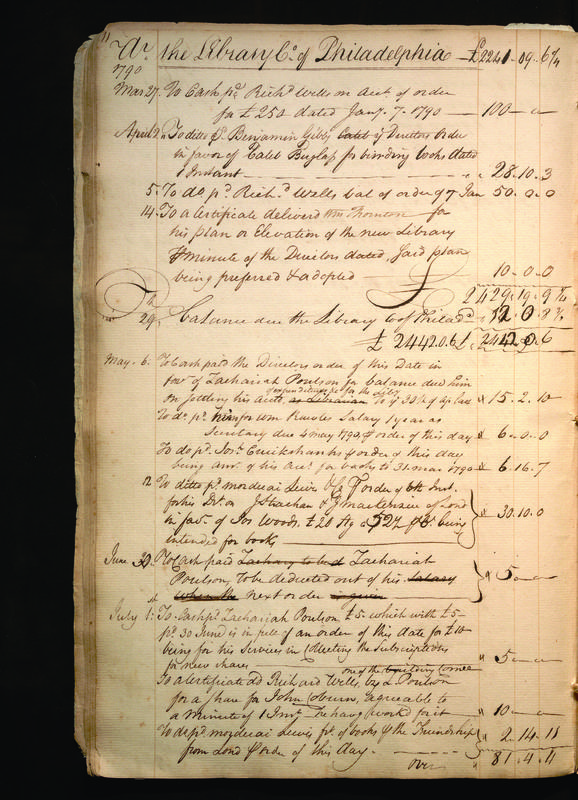 11
Dr. the Library Co. of Philadelphia — £2241. 09. 6¾
1790
Mar 27. To Cash pd. Richd. Wells on Acct. of order
for £250 dated Jany. 7. 1790 — 100 — —
April 2. To ditto pd. Benjamin Gibbs Caleb Directors Order
in favor of Caleb Buglass for binding books dated
1 Instant — 28. 10. 3
5. To do pd. Richd. Wells bal of order of 7 Jan 50. 0. 0
14. To a Certificate deliverd Wm Thornton for
his plan or Elevation of the new Library
minute of the Directors dated, said plan
being preferred & adopted 10. 0. 0
2429. 19. 9¾
29. Ballance due the Library Co of Philada. 12. 0. 8¼
£ 2442. 0. 6 £ 2442. 0. 6
May. 6. To Cash paid the Directors order of this Date in
favr. of Zachariah Poulson for balance due him
on settling his Accts. as Librarian 15. 2. 10
To do. pd. him for Wm Rawles Salary 1 year as
Secretary due 4 may 1790, order of this day 6. 0. 0
To do pd. Josh. Cruikshanks order of this day
being Amt. of his Acct. for books to 31 mar 1790 6. 16. 7
12 To ditto pd. mordecai Lewis & Co order of 6th Inst.
for his Dft. on J Strachan & J Mackenzie of Lond
in favr. of Jos Woods. £20 Stg being
intended for books 30. 10. 0
June 30. To Cash paid Zachary to be d Zachariah
Poulson, to be deducted out of his Salary
when the next order is given 5 — —
July 1. To Cash pd. Zachariah Poulson £5 which with £5
pd. 30 June is in full of an order of this date for £10
being for his Services in Collecting the subscriptions
for new shares 5 — —
one of the building Comee
To a Certificate dd Richard Wells, by Z Poulson
for a share for John Coburn, agreeable to
a minute of 1 Inst. he havg. workd for it 10 — —
To do pd. mordecai Lewis, frt. of books the Friendship
from Lond order of this day. 2. 14. 11
over 81. 4. 11